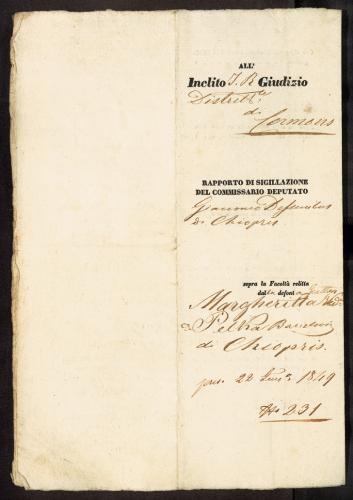 ALL'
Inclito I. R. Giudizio
Distrett.le
di
Cormons
RAPPORTO DI SIGILLAZIONE
DEL COMMISSARIO DEPUTATO
Giacomo
di Chiopris
sopra la Facoltà relitta
dalla defont
Margheritta
Petria
di Chiopris.
pres. 22 1849
N. 231